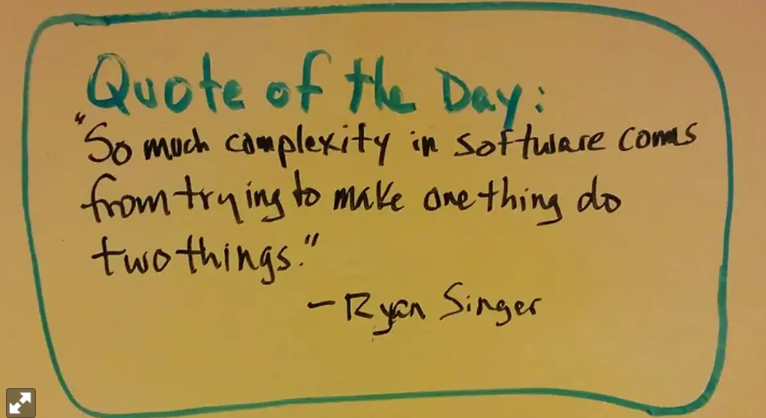 Quote of the Day:
"So much complexity in software comes
from trying to make one thing do
two things."
—Ryan Singer